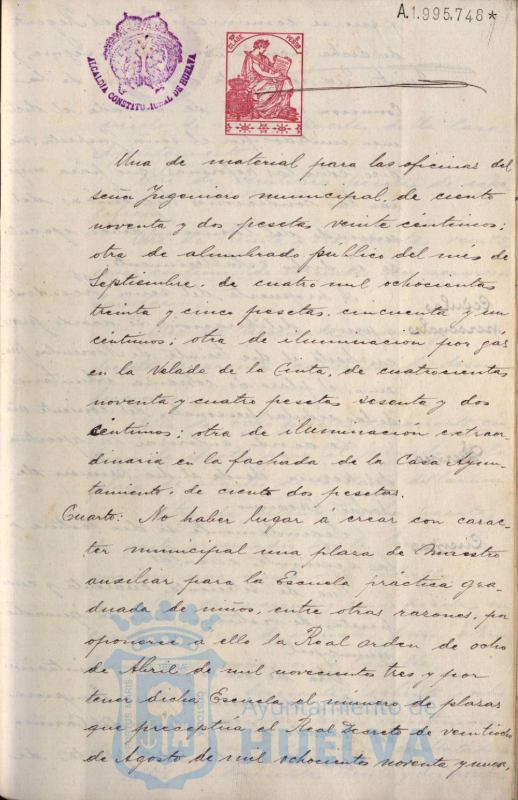 A.1.995.748*
ALCALDIA CONSTITUCIONAL DE HUELVA
Una de material para las oficinas del
señor Ingeniero municipal, de ciento
noventa y dos pesetas veinte céntimos;
otra de alumbrado público del mes de
Septiembre, de cuatro mil ochocientas
treinta y cinco pesetas, cincuenta y un
céntimos; otra de iluminación por gas
en la Velada de la Cinta, de cuatrocientas
noventa y cuatro pesetas sesenta y dos
céntimos; otra de iluminación extraor-
dinaria en la fachada de la Casa Ayun-
tamiento, de ciento dos pesetas.
Cuarto: No haber lugar á crear con carac-
ter municipal una plaza de Maestro
auxiliar para la Escuela práctica gra-
duada de niños, entre otras razones, por
oponerse a ello la Real orden de ocho
de Abril de mil novecientos tres y por
tener dicha Escuela el número de plazas
que preceptúa el Real Decreto de veintiocho
de Agosto de mil ochocientos noventa y nueve,
Ayuntamiento de
HUELVA